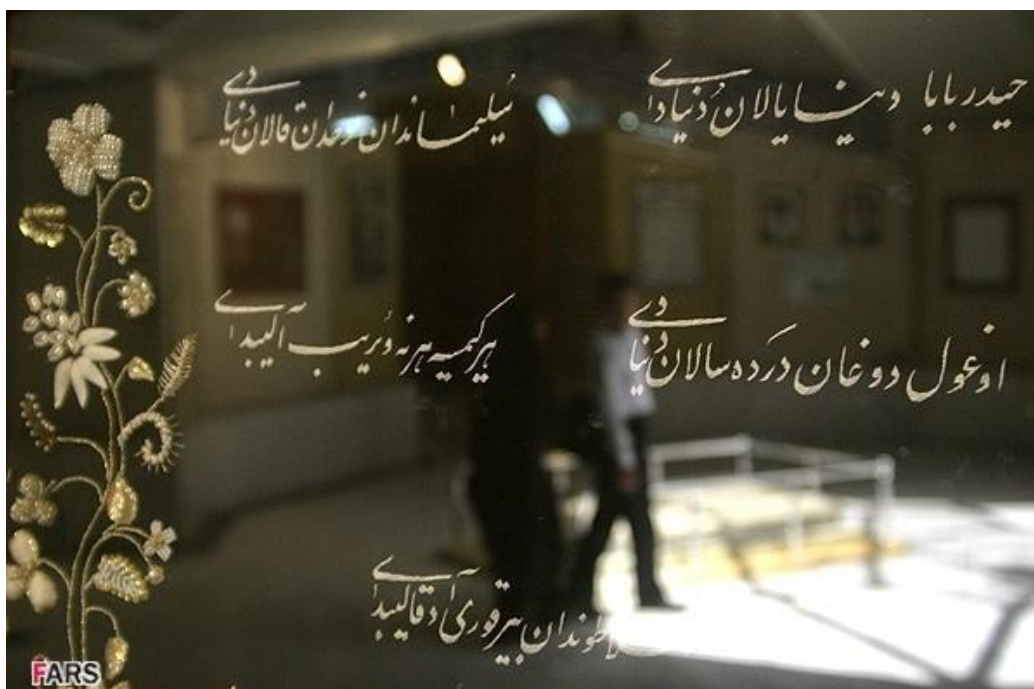 حیدربابا دنیا یالان دنیادی
سلیماندان نوحدان قالان دنیادی
اوغول دوغان درده سالان دنیادی
هر کیمسیه هر نه ویریب آلیبدی
بیر قوری آد قالیبدی
FARS